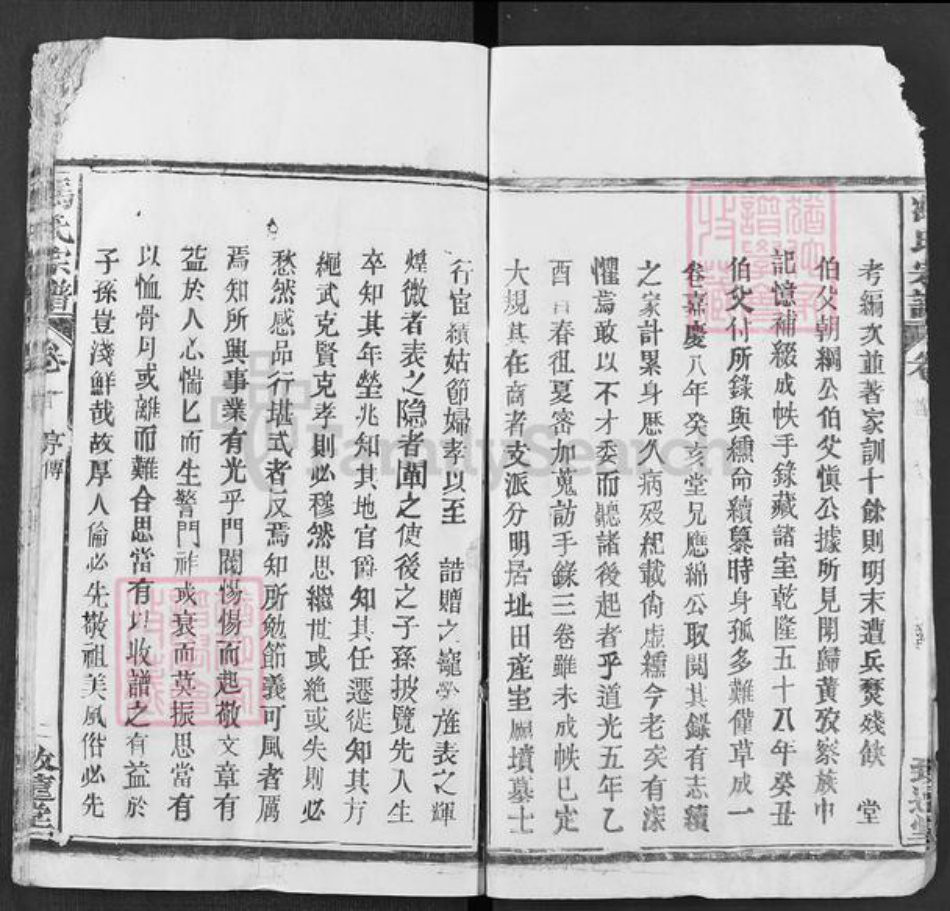 考編次並著家訓十餘則明末遭兵燹殘缺 堂
伯父朝綱公伯父慎公據所見聞歸黃孜察族中
記憶補綴成帙手錄藏諸室乾隆五十八年癸丑
伯父付所錄與繻命續纂時身孤多難僅草成一
卷嘉慶八年癸亥堂兄應綿公取閱其錄有志續
之家計累身歷久病歿紀載尚虛繻今老矣有深
懼焉敢以不才委而聽諸後起者乎道光五年乙
酉 春徂夏密加蒐訪手錄三卷雖未成帙已定
大規其在商者支派分明居址田產室廬墳墓士
行宦績姑節婦孝以至 誥贈之寵 旌表之輝
煌微者表之隐者闡之使後之子孫披覽先人生
卒知其年塋兆知其地官爵知其任遷徙知其方
繩武克賢克孝則必穆然思繼世或絶或失則必
愁然感品行堪式者反焉知所勉節義可風者厲
焉知所興事業有光乎門閥惕惕而起敬文章有
益於人心惴匕而生警門祚或衰而莫振思當有
以恤骨月或離而難合思當有以收譜之有益於
子孫豈淺鮮哉故厚人倫必先敬祖美風俗必先
馮氏宗譜 卷一 序傳